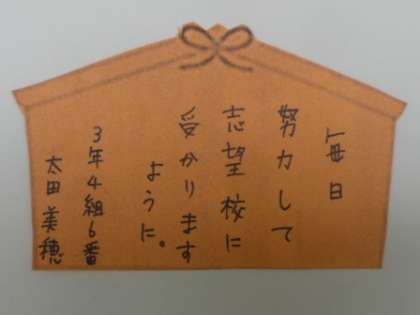 毎日
努力して
志望校に
受かります
ように。
3年4組6番
太田美穂